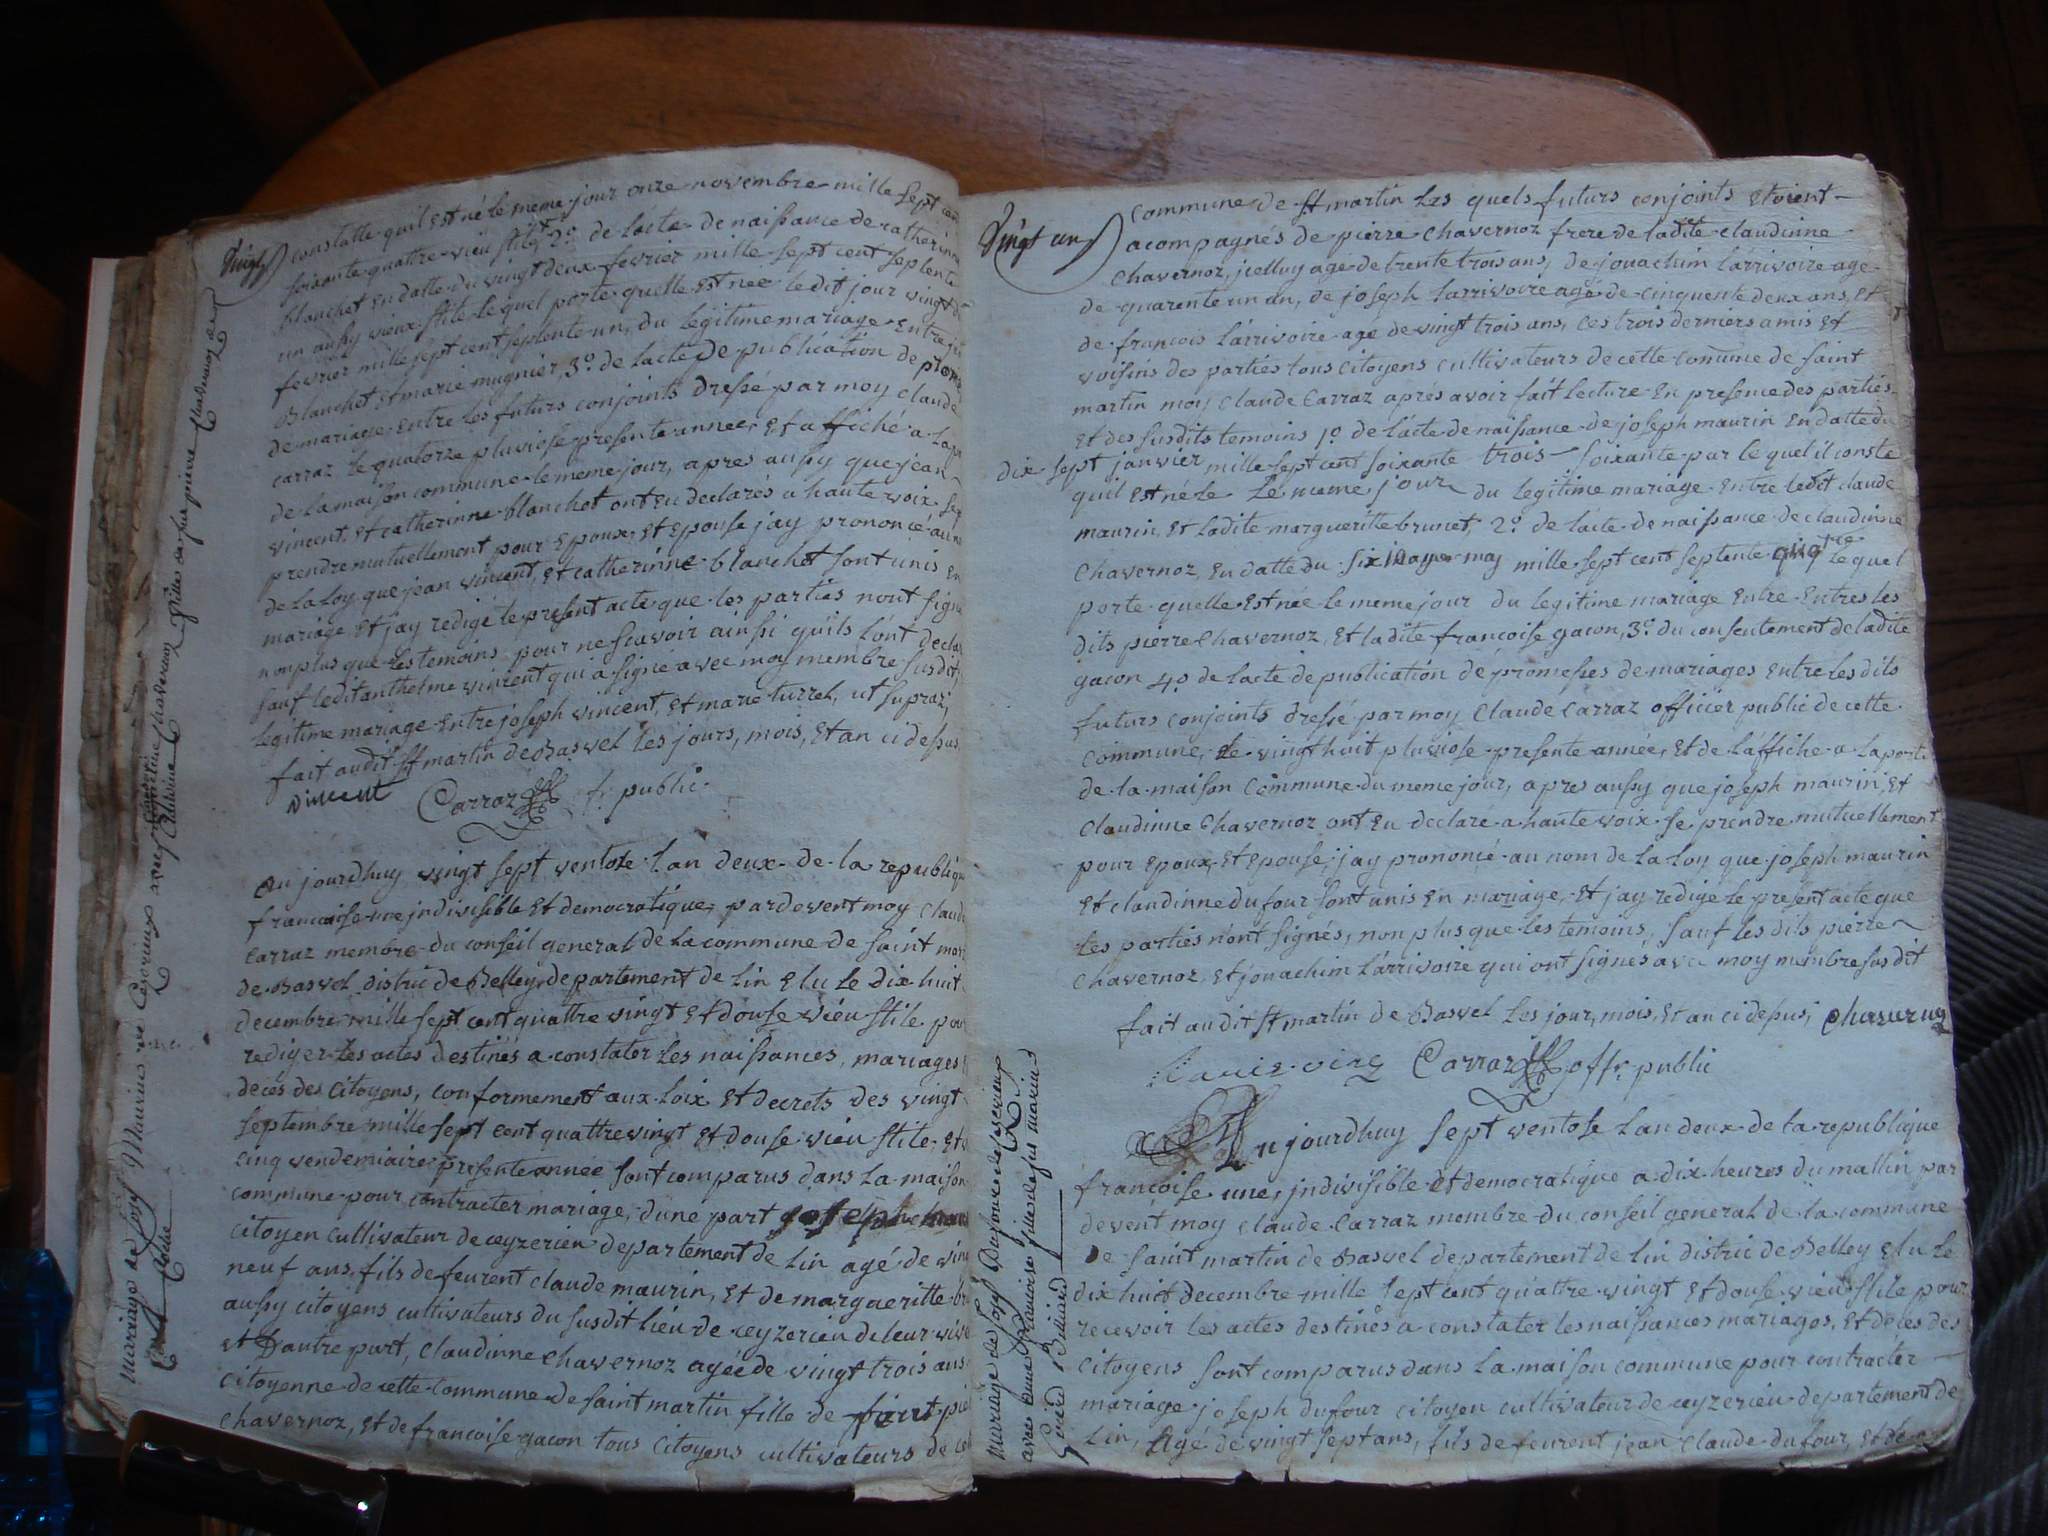 Vingt
constatte quil Est né le meme jour onze novembre mille sept cent
soixante quattre vieu stile, 2.o de l'acte de naissance de catherinne
blanchet En datte du vingt deux fevrier mille sept cent septente
un aussy vieux stile lequel porte quelle Est née ledit jour vingt
fevrier mille sept cent septente un, du legitime mariage Entre
Blanchet Et marie mugnier, 3.o de lacte de publication de
de mariage Entre les futurs conjoints dressé par moy claude
carraz le quatorze pluviose presente année, Et affiché a la
de la maison commune le meme jour, apres aussy que jean
vincent, Et catherinne blanchet ont Eu declarés a haute voix se
prendre mutuellement pour Epoux, Et Epouse jay prononcé au
de la Loy que jean vincent, Et catherinne blanchet sont unis En
mariage Et jay redigé le present acte que les parties nont signé
non plus que les temoins pour ne scavoir ainsi quils lont
sauf ledit anthelme vincent qui a signé avec moy membre susdit,
legitime mariage Entre joseph vincent, Et marie turrel, ut supra
fait audit st martin de Basvel les jours, mois, Et an ci dessus,
vincent Carraz f. public.
Aujourdhuy vingt sept ventose lan deux de la republique
francaise une jndivisible Et democratique, pardevent moy Claude
Carraz membre du conseil general de la commune de saint
de Basvel distric de Belley departement de lin Elu le dix huit
decembre mille sept cent quattre vingt Et douse vieu stile pour
rediger les actes destinés a constater les naissances, mariages
deces des Citoyens, conformement aux loix Et decrets des vingt
septembre mille sept cent quattre vingt Et douse vieu stile, Et
cinq vendemiaire presente année sont comparus dans la maison
commune pour contracter mariage, dune part joseph
citoyen cultivateur de ceyzerieu departement de lin agé de
neuf ans, fils de feurent claude maurin, Et de margueritte
aussy citoyens cultivateurs du susdit lieu de ceyzerieu de leur
Et Dautre part, Claudinne chavernoz agée de vingt trois ans
citoyenne de cette commune de saint martin fille de
Chavernoz, Et de francoise gacon tous Citoyens cultivateurs de
Mariage de Josep Maurin de Ceserieux avec Claudine Chavernoz fille de fus pierre Chavernoz
Vingt un
commune de st martin les quels futurs conjoints Etoient
acompagnés de pierre chavernoz frere de ladite claudinne
Chavernoz, jcelluy agé de trente trois ans, de jouachim larrivoire agé
de quarente un an, de joseph larrivoire agé de cinquente deux ans, Et
de francois larrivoire agé de vingt trois ans, ces trois derniers amis Et
voisins des parties tous citoyens cultivateurs de cette comune de saint
martin moy Claude Carraz aprés avoir fait lecture En presence des parties
Et des susdits temoins 1.o de lacte de naissance de joseph maurin En datte du
dix sept janvier mille sept cent soixante trois soixante par le quel il conste
quil Est né le Le meme jour du legitime mariage Entre ledit claude
maurin, Et ladite margueritte brunet, 2.o de l'acte de naissance de claudinne
Chavernoz, En datte du six may mille sept cent septente Le quel
porte quelle Est née le meme jour du legitime mariage Entre Entres les
dits pierre Chavernoz, Et ladite francoise gacon, 3.o du consentement de ladite
gacon 4.o de lacte de publication de promesses de mariages Entre les dits
futurs conjoints dressé par moy Claude Carraz officier public de cette
Commune, le vingt huit pluviose presente année, Et de laffiche a la porte
de la maison Commune du meme jour, apres aussy que joseph maurin, Et
Claudinne Chavernoz ont Eu declaré a haute voix se prendre mutuellement
pour Epoux, Et Epouse, jay prononcé au nom de la Loy que joseph maurin
Et claudinne dufour sont unis En mariage, Et jay redigé le present acte que
les parties n'ont signés, non plus que les temoins, sauf les dits pierre
Chavernoz, Et jouachim larrivoire qui ont signés avec moy membre susdit
fait audit st martin de Basvel les jour, mois, Et an ci dessus,
Carraz offr. public
Aujourdhuy sept ventose lan deux de la republique
françoise une, jndivisible Et democratique a dix heures du mattin par
devent moy Claude Carraz membre du conseil general de la commune
De saint martin de Basvel departement de lin distric de Belley Elu le
dix huit decembre mille sept cent quattre vingt Et douse vieu stile pour
recevoir les actes destinés a constater les naissances mariages, Et deces des
Citoyens sont comparus dans la maison commune pour contracter
mariage joseph dufour citoyen cultivateur de ceyzerieu departement de
lin, agé de vingt sept ans, fils de feurent jean Claude dufour, Et de
mariage de Josep Dufour de Ceserieux
avec Francoise fille de fus marin